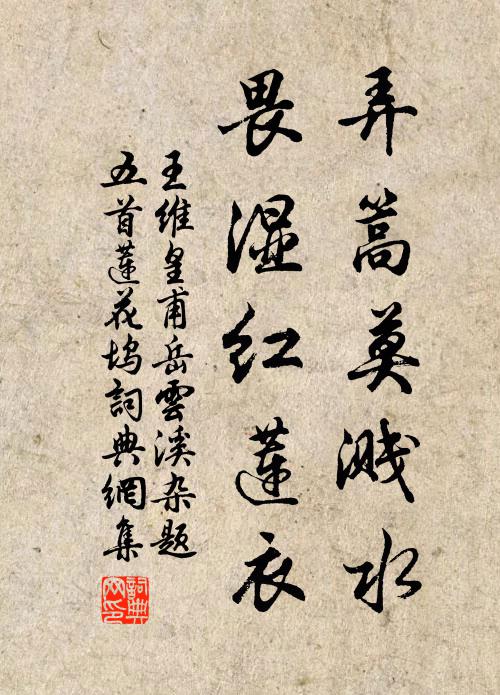 弄篙莫溅水
畏湿红莲衣
王维皇甫岳雲溪杂题
五首莲花坞詞典網集
詞典网印